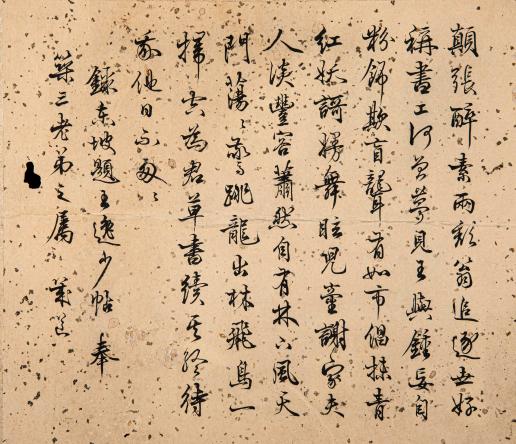 顛張醉素兩禿翁追逐世好
稱書工何曾夢見王與鍾妄自
粉飾欺盲聾有如市倡抹青
紅妖謌嫚舞眩兒童謝家夫
人淡豐容蕭然自有林下風天
門蕩〻驚跳龍出林飛鳥一
掃空為君草書續其終待
我他日不匆〻
錄東坡題王逸少帖 奉
築三老弟之屬